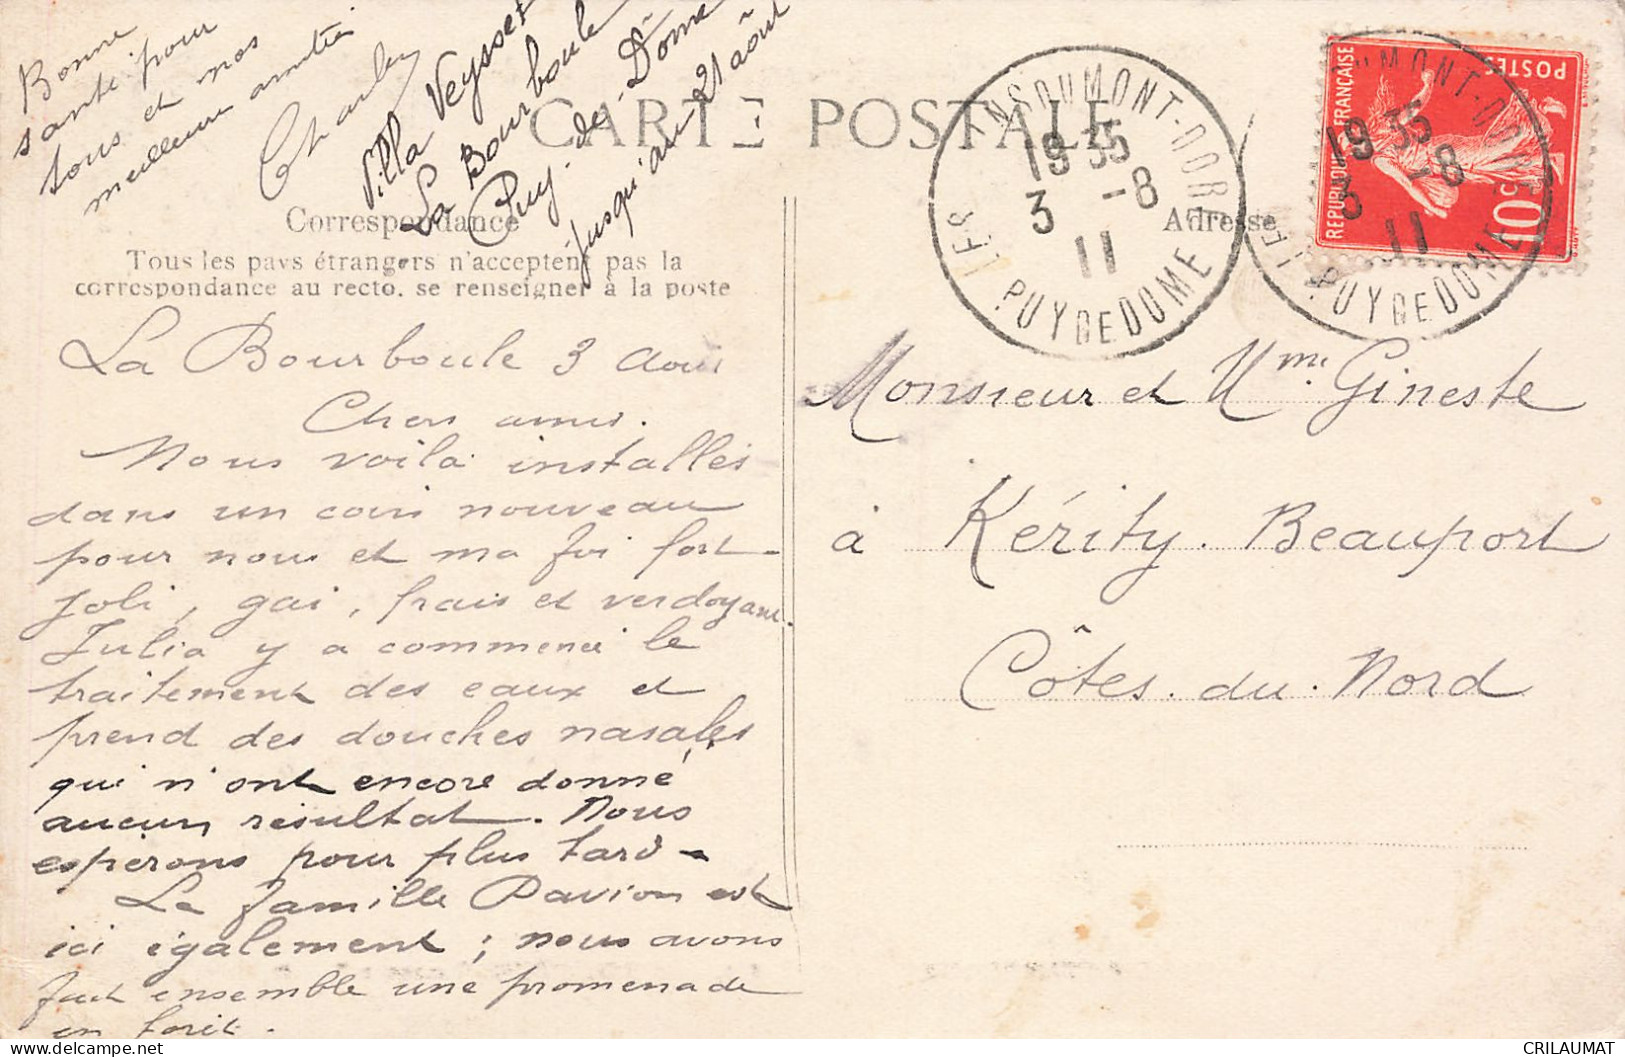 Bonne
santé pour
tous et nos
meilleures amitiés
Charles
Villa Veysset
La Bourboule
Puy-de-Dôme
jusqu'au 21 août
CARTE POSTALE
Correspondance
Tous les pays étrangers n'acceptent pas la
correspondance au recto. se renseigner à la poste
La Bourboule 3 Août
Chers amis.
Nous voila installés
dans un coin nouveau
pour nous et ma foi fort
joli, gai, frais et verdoyant.
Julia y a commencé le
traitement des eaux et
prend des douches nasales
qui n'ont encore donné
aucun résultat. Nous
espérons pour plus tard -
La famille Pavion est
ici également ; nous avons
fait ensemble une promenade
en forêt.
Adresse
19 35
3 -8
11
PUY DE DOME
REPUBLIQUE FRANÇAISE
POSTES
10c
19 35
3 -8
11
PUY DE DOME
Monsieur et Mme. Gineste
à Kérity. Beauport
Côtes. du. Nord
CRILAUMAT